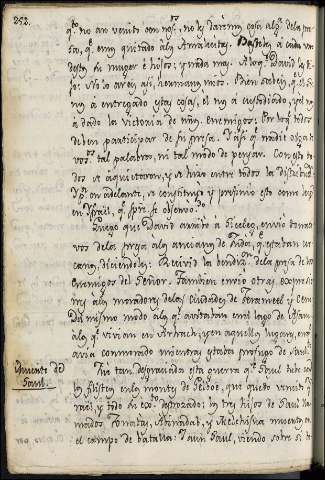 252.
q.e no an venido con nos.s, no les daremos cosa alg.a dela pre-
sa, q.e emos quitado alos Amalecitas. Basteles a cada uno
destos su muger e hijos; y nada mas. A los q.e David les di-
jo: No lo areis asi, hermanos mios. Bien sabeis, q.e el S.r
nos à entregado estas cosas, el nos à custodiado, y el nos
à dado la victoria de nros. enemigos: Por loq.e todos
deben participar de su presa. Y asi q.e nadie oiga de
vos.s tal palabras, ni tal modo de pensar. Con esto to-
dos se aquietaron, y se hizo entre todos la distribuc.n
Y p.r en adelante, se constituyo y prefinio esto como ley
en Ysrael, q.e spre. se observó.
Luego que David arribò à Siceleg, envió donati-
vos dela presa alos ancianos de Judà, q.e estaban cer-
canos, diciendoles: Recivid la bendic.on dela presa de los
enemigos del Señor. Tambien envio otras expresio-
nes alos moradores delas Ciudades de Jerameel y Ceni
Del mismo modo alos q.e avitaban en el lago de Asan:
alos q.e vivian en Athach; y en aquellos lugares, en q.e
avia conmorado mientras estaba profugo de Saul.
Muerte de
Saul.
Fue tan desgraciada esta guerra q.e Saul tubo con
los Filisteos en los montes de Gelboe, que quedo vencido Ys-
rael, y todo su exo. destrozado: los tres hijos de Saul lla-
mados Jonatas, Abinadab, y Melchisua muertos en
el campo de batalla: Y aun Saul, viendo sobre si